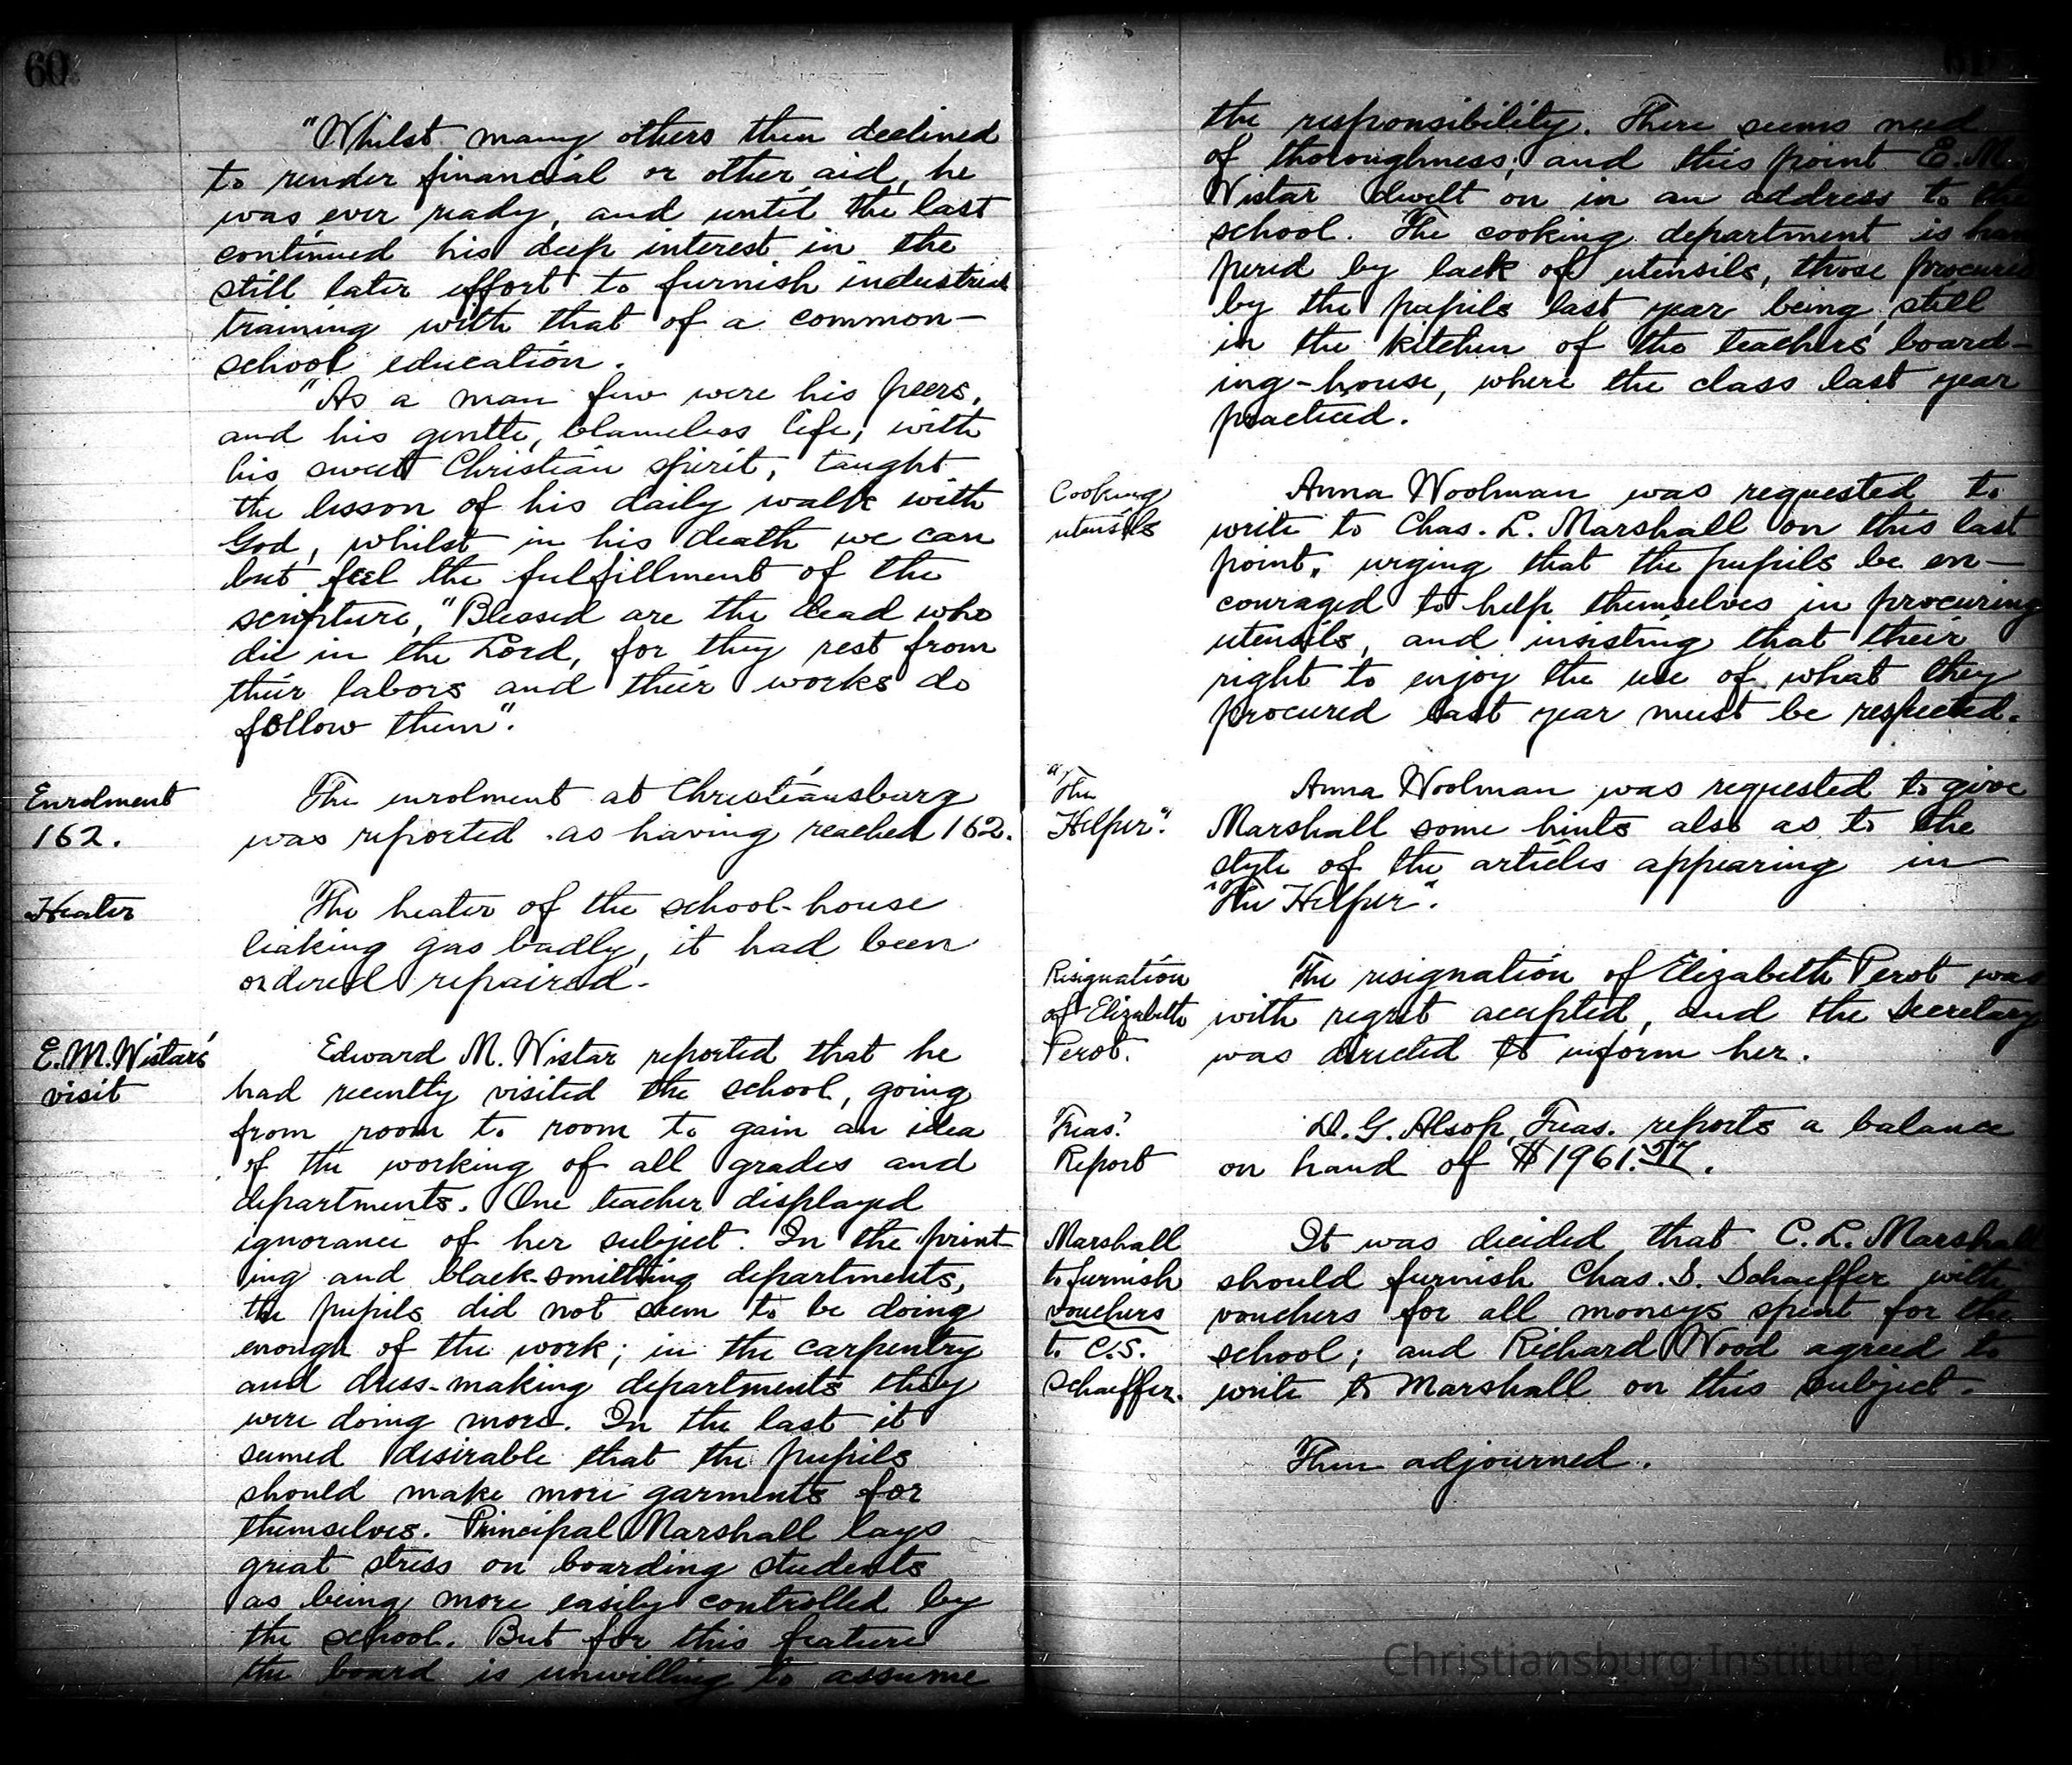 60
"Whilst many others then declined
to render financial or other aid, he
was ever ready, and until the last
continued his deep interest in the
still later effort to furnish industrial
training with that of a common-
school education.
"As a man few were his peers,
and his gentle, blameless life, with
his sweet Christian spirit, taught
the lesson of his daily walk with
God, whilst in his death we can
but feel the fulfillment of the
scripture, "Blessed are the dead who
die in the Lord, for they rest from
their labors and their works do
follow them".
Enrolment
162.
The enrolment at Christiansburg
was reported as having reached 162.
Heater
The heater of the school-house
leaking gas badly, it had been
ordered repaired.
E.M.Wistar's
visit
Edward M. Wistar reported that he
had recently visited the school, going
from room to room to gain an idea
of the working of all grades and
departments. One teacher displayed
ignorance of her subject. In the print-
ing and black-smithing departments,
the pupils did not seem to be doing
enough of the work; in the carpentry
and dress-making departments they
were doing more. In the last it
seemed desirable that the pupils
should make more garments for
themselves. Principal Marshall lays
great stress on boarding students
as being more easily controlled by
the school. But for this feature
the board is unwilling to assume
61
the responsibility. There seems need
of thoroughness; and this point E.M.
Wistar dwelt on in an address to the
school. The cooking department is ham
pered by lack of utensils, those procured
by the pupils last year being still
in the kitchen of the teachers' board-
ing-house, where the class last year
practiced.
Cooking
utensils
Anna Woolman was requested to
write to Chas. L. Marshall on this last
point, urging that the pupils be en-
couraged to help themselves in procuring
utensils, and insisting that their
right to enjoy the use of what they
procured last year must be respected.
"The
Helper".
Anna Woolman was requested to give
Marshall some hints also as to the
style of the articles appearing in
"The Helper".
Resignation
of Elizabeth
Perot.
The resignation of Elizabeth Perot was
with regret accepted, and the Secretary
was directed to inform her.
Treas.'
Report
D. G. Alsop, Treas. reports a balance
on hand of $1961.
Marshall
to furnish
vouchers
to C.S.
Schaeffer.
It was decided that C. L. Marshall
should furnish Chas. S. Schaeffer with
vouchers for all moneys spent for the
school; and Richard Wood agreed to
write to Marshall on this subject.
Then adjourned.
Christiansburg Institute, I